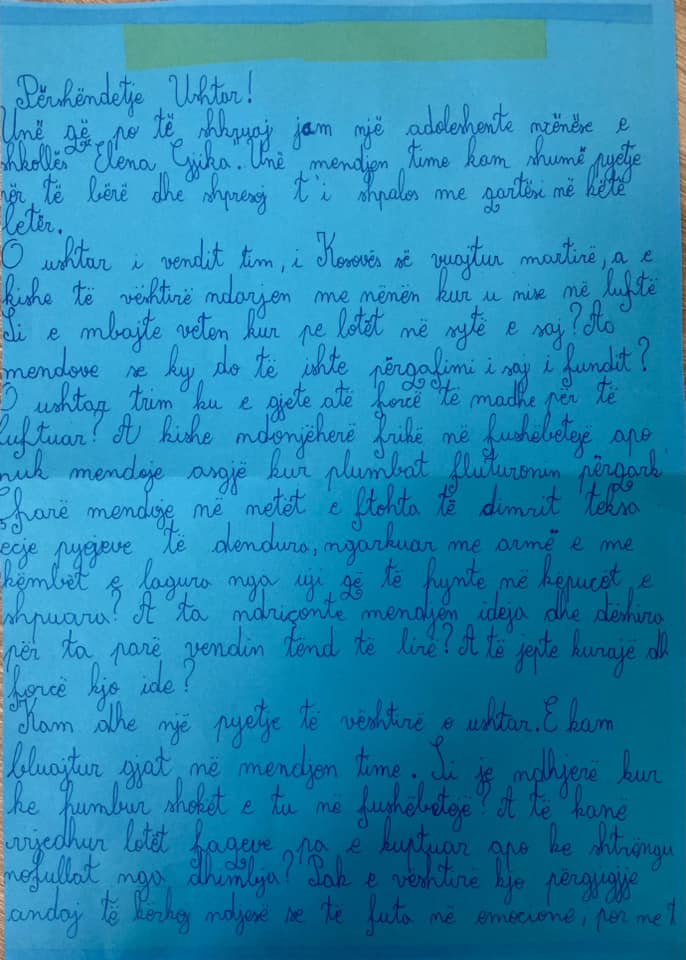 Përshëndetje Ushtar!
Unë që po të shkruaj jam një adoleshente nxënëse e
shkollës "Elena Gjika". Unë mendjen time kam shumë pyetje
për të bërë dhe shpresoj t'i shpalos me qartësi në këtë
letër.
O ushtar i vendit tim, i Kosovës së vuajtur martirë, a e
kishe të vështirë ndarjen me nënën kur u nise në luftë
Si e mbajte veten kur pe lotët në sytë e saj? Ao
mendove se ky do të ishte përqafimi i saj i fundit?
O ushtar trim ku e gjete atë forcë të madhe për të
luftuar? A kishe ndonjëherë frikë në fushëbetejë apo
nuk mendoje asgjë kur plumbat fluturonin përqark
Çfarë mendoje në netët e ftohta të dimrit teksa
ecje pyjeve të dendura, ngarkuar me armë e me
këmbët e lagura nga uji që të hynte në këpucët e
shpuara? A ta ndriçonte mendjen ideja dhe dëshira
për ta parë vendin tënd të lirë? A të jepte kurajë dh
forcë kjo ide?
Kam dhe një pyetje të vështirë o ushtar. E kam
bluajtur gjat në mendjen time. Si je ndhjerë kur
ke humbur shokët e tu në fushëbetejë? A të kanë
rrjedhur lotët faqeve pa e kuptuar apo ke shtrëngu
nofullat nga dhimbja? Pak e vështirë kjo përgjigjje
andaj të kërkoj ndjesë se të futa në emocione, por më t